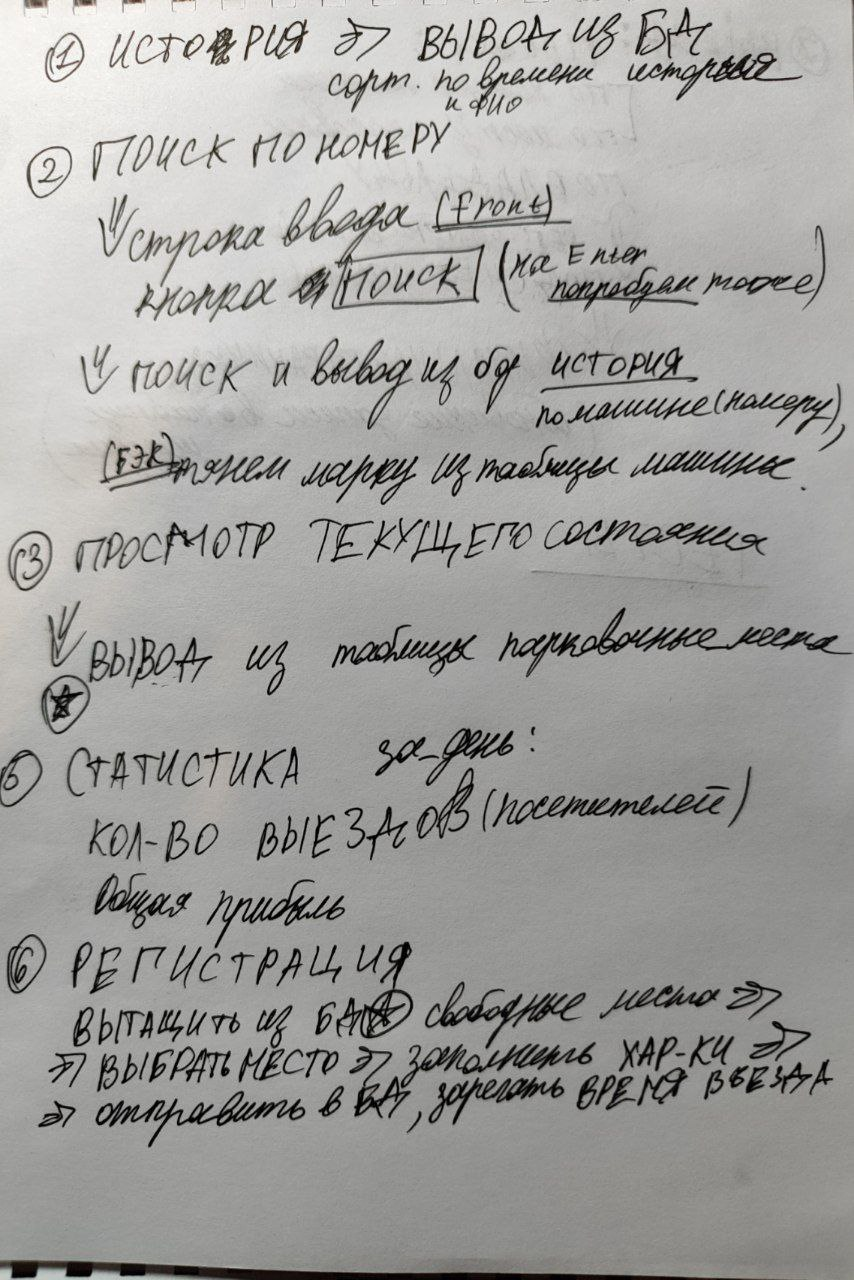 1 ИСТОРИЯ => ВЫВОД ИЗ БД
сорт. по времени история
и ФИО
2 ПОИСК ПО НОМЕРУ
строка ввода (Front)
кнопка ПОИСК (на Enter
попробуем тоже)
поиск и вывод из бд ИСТОРИЯ
по машине (номеру),
(БЭК) тянем марку из таблицы машины.
3 ПРОСМОТР ТЕКУЩЕГО состояния
ВЫВОД из таблицы парковочные места
5 СТАТИСТИКА за день:
КОЛ-ВО ВЫЕЗДОВ (посетителей)
Общая прибыль
6 РЕГИСТРАЦИЯ
ВЫТАЩИТЬ из БД свободные места =>
=> ВЫБРАТЬ МЕСТО => заполнить ХАР-КИ =>
=> отправить в БД, зарегать ВРЕМЯ ВЪЕЗДА